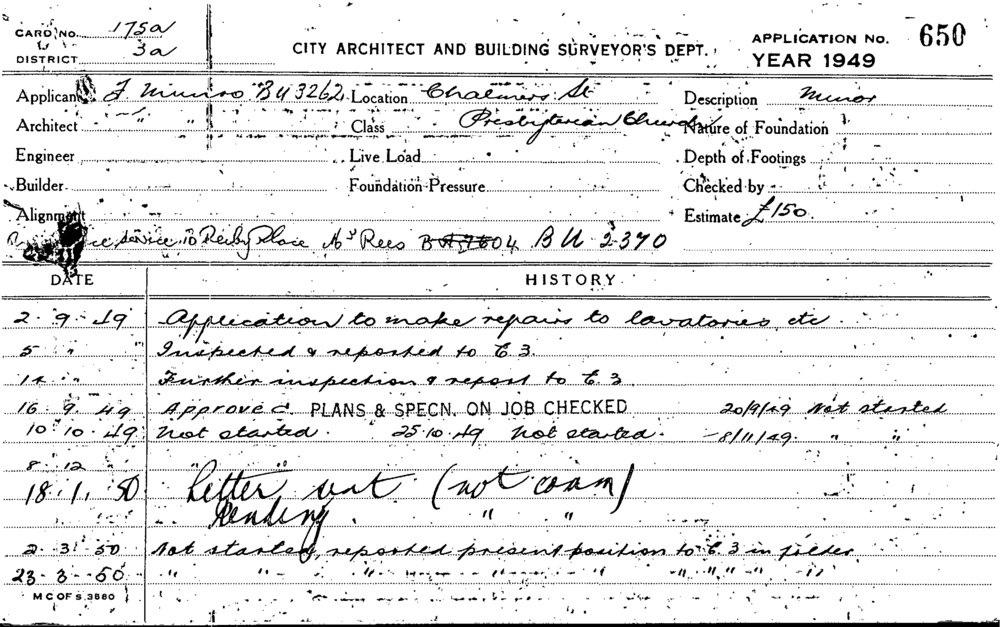 CARD NO. 175a
DISTRICT 3a
CITY ARCHITECT AND BUILDING SURVEYOR'S DEPT.
APPLICATION No. 650
YEAR 1949
Applicant F Munro BU3262 Location Chalmers St Description Minor
Architect " " Class Presbyterian Church Nature of Foundation
Engineer Live Load Depth of Footings
Builder Foundation Pressure Checked by
Alignment Estimate £150
service to Place Rees 04 BU 2370
DATE HISTORY
2. 9. 49 Application to make repairs to lavatories etc.
5 " Inspected & reported to E 3.
14 " Further inspection & report to E 3
16. 9. 49 Approved PLANS & SPECN. ON JOB CHECKED 20/9/49 Not started
10. 10. 49 Not started. 25.10.49 Not started. - 8/11/49. " "
8. 12 " " "
18. 1. 50 Letter sent. (not comm)
Pending. " "
2. 3. 50 Not started, reported present position to E 3 in folder
23-3-50 " " " " " " " " " " " "
M C OF S. 3880